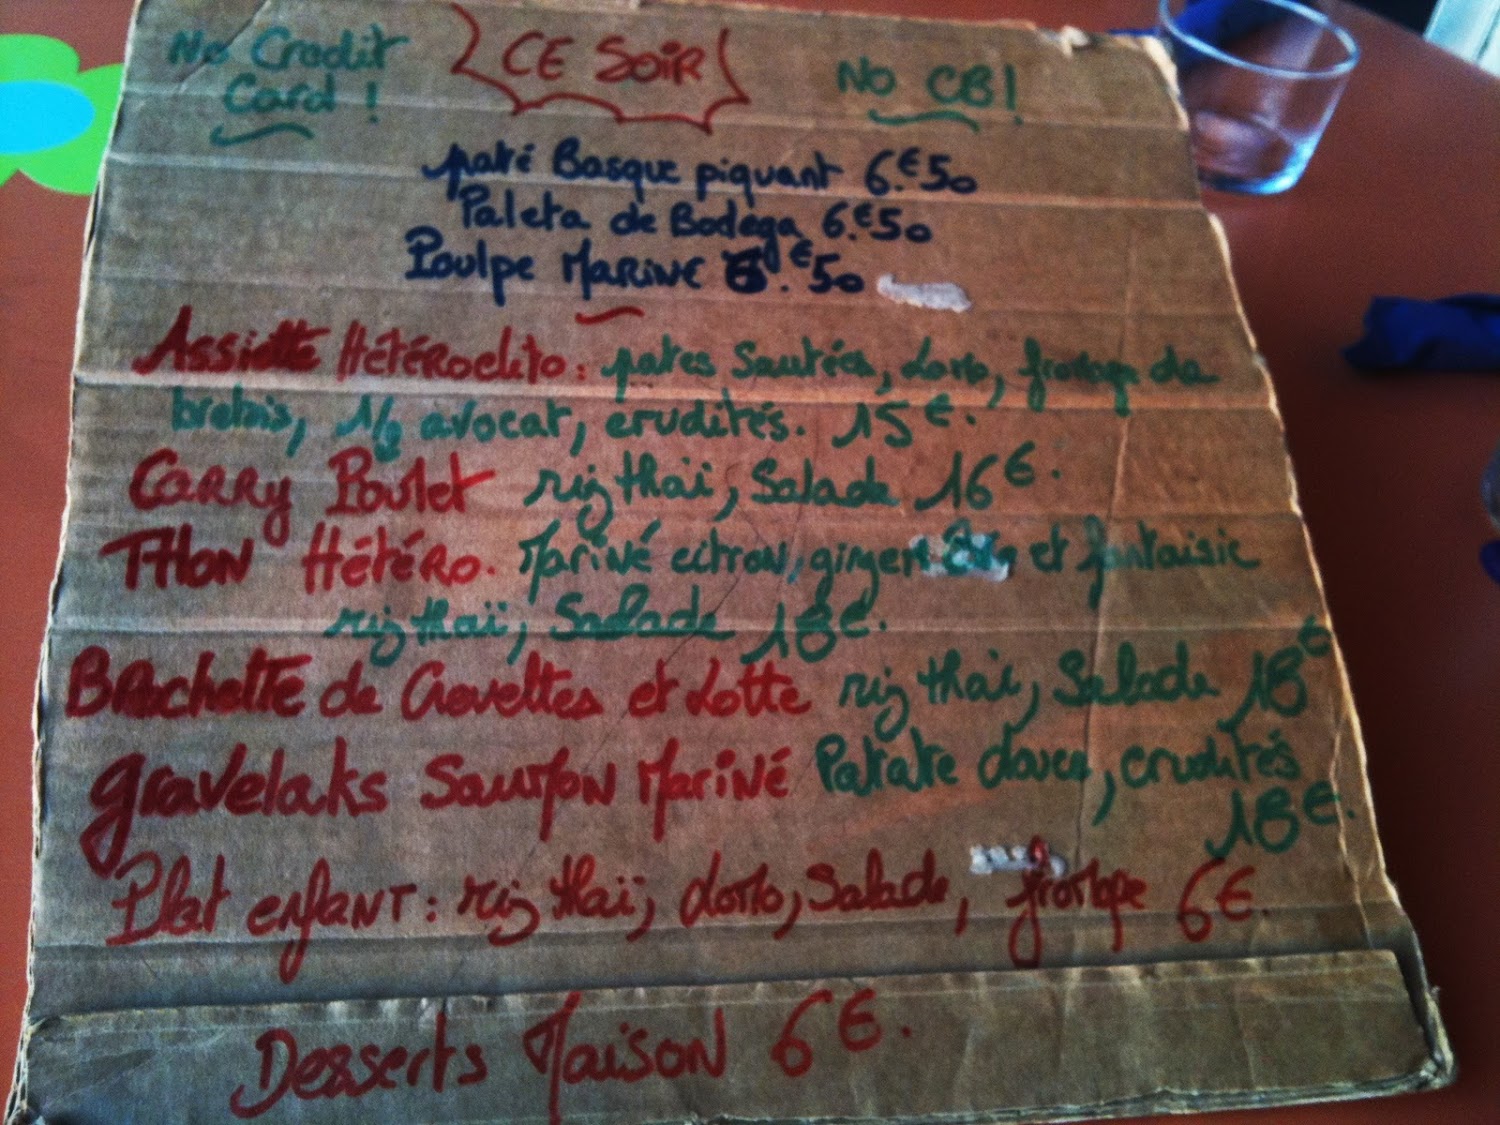 No Credit Card !
CE SOIR
No CB !
pâté Basque piquant 6.€50
Paleta de Bodega 6.€50
Poulpe MARINÉ 6.€50
Assiette Hétéroclito : pates Sautées, Lomo, fromage de
brebis, 1/2 avocat, crudités. 15€.
CARRY Poulet riz thaï, Salade 16€.
THON Hétéro. Mariné citron, gingem et fantaisie
riz thaï, Salade 18€.
BRochette de Crevettes et Lotte riz thaï, Salade 18€
gravelaks SAUMON MARINÉ Patate douce, crudités
18€.
Plat enfant : riz thaï, Lomo, Salade, fromage 6€.
Desserts MAISON 6€.